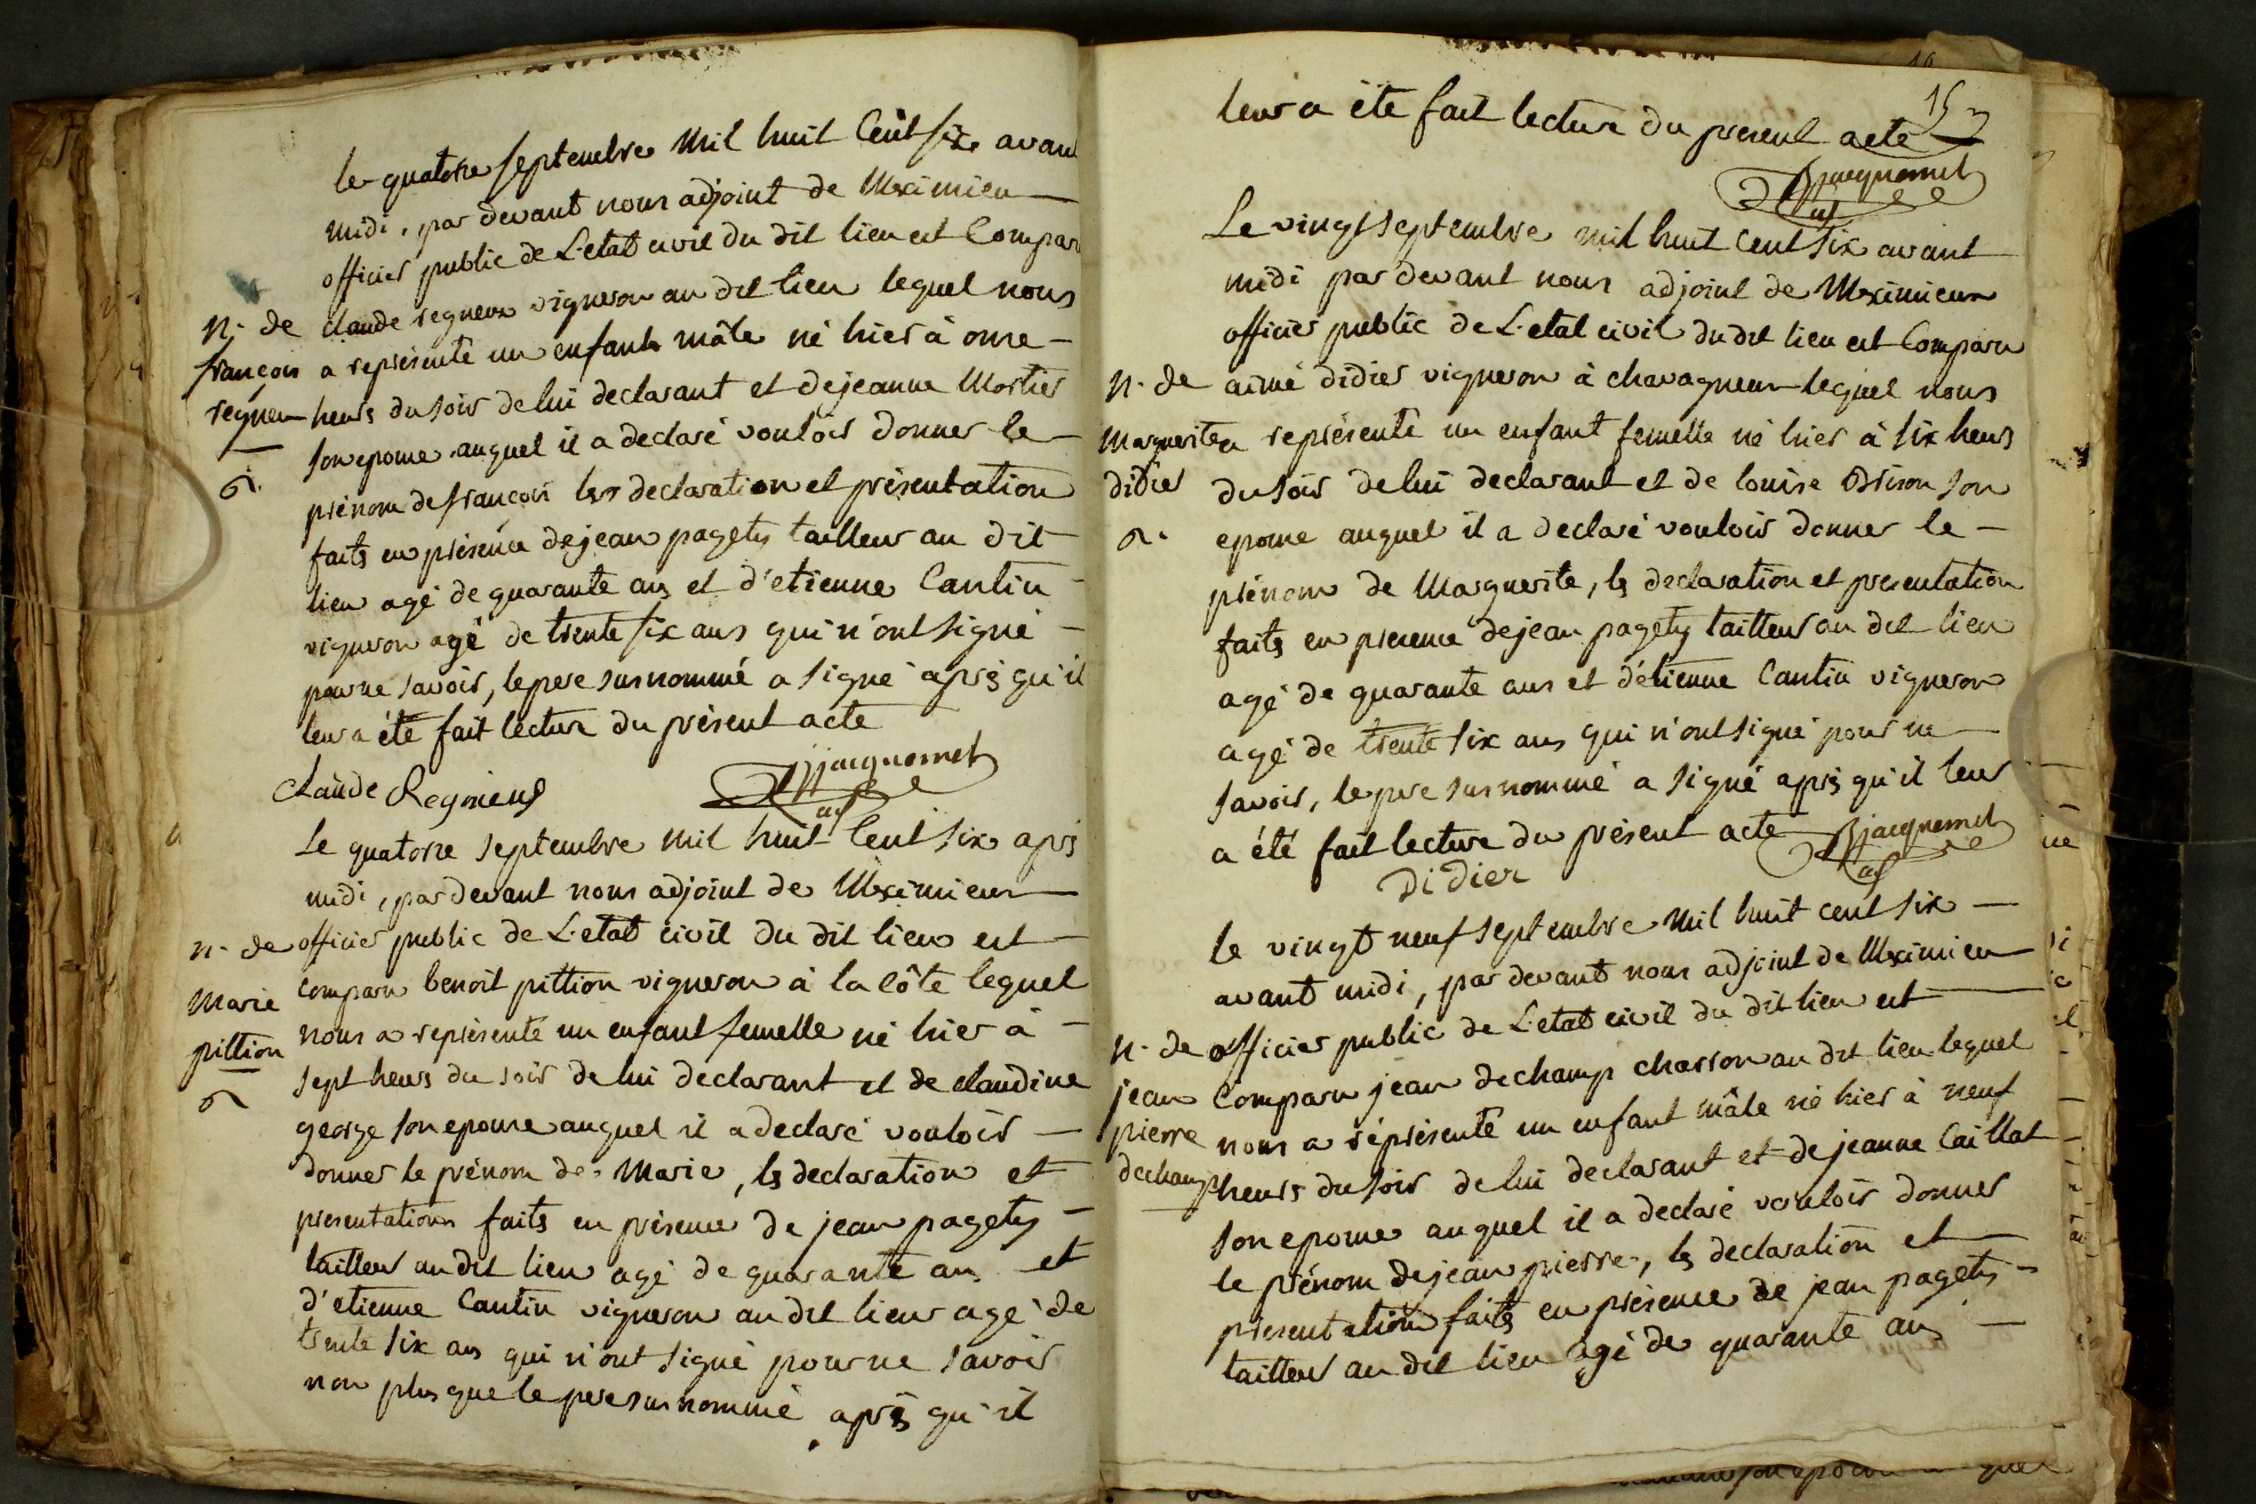 le quatorze septembre mil huit cent six avant
midi, par devant nous adjoint de Meximieu
officier public de L'etat civil du dit lieu est Comparu
n. de
françois
regneu
claude regneux vigneron au dit lieu lequel nous
a représenté un enfant mâle né hier à onze
heurs du soir de lui declarant et de jeanne Mortier
son epouse auquel il a declaré vouloir donner le
prénom de françois les declaration et présentation
faits en présence de jean pagety tailleur au dit
lieu agé de quarante ans et d'etienne Cantin
vigneron agé de trente six ans qui n'ont signé
pour ne savoir, le pere surnommé a signé après qu'il
leur a été fait lecture du présent acte
claude Regnieux
Bjacquemet
adj
Le quatorze septembre mil huit cent six aprs
midi, par devant nous adjoint de Meximieux
n. de
Marie
pittion
officier public de L'etat civil du dit lieu est
comparu benoit pittion vigneron à la côte lequel
nous a représenté un enfant femelle né hier à
sept heurs du soir de lui declarant et de claudine
george son epouse auquel il a declaré vouloir
donner le prénom de Marie, ls declaration et
presentation faits en présence de jean pagety
tailleur au dit lieu agé de quarante ans et
d'etienne Cantin vigneron au dit lieu agé de
trente six ans qui n'ont signé pour ne savoir
non plus que le pere surnommé après qu'il
15
leur a été fait lecture du présent acte
Bjacquemet
adj
Le vingt septembre mil huit cent six avant
midi par devant nous adjoint de Meximieux
officier public de L'etat civil du dit lieu est Comparu
n. de
Marguerite
didier
aimé didier vigneron à chavagneux lequel nous
a représenté un enfant femelle né hier à six heurs
du soir de lui declarant et de louise Brison son
epouse auquel il a declaré vouloir donner le
prénom de Marguerite, ls declaration et presentation
faits en presence de jean pagety tailleur au dit lieu
agé de quarante ans et d'étienne Cantin vigneron
agé de trente six ans qui n'ont signé pour ne
savoir, le pere surnommé a signé après qu'il leur
a été fait lecture du présent acte
Bjacquemet
adj
Didier
le vingt neuf septembre mil huit cent six
avant midi, par devant nous adjoint de Meximieu
n. de
jean
pierre
dechamp
officier public de L'etat civil du dit lieu est
Comparu jean dechamp charron au dit lieu lequel
nous a réprésenté un enfant mâle né hier à neuf
heurs du soir de lui declarant et de jeanne Caillat
son epouse auquel il a declaré vouloir donner
le prénom de jean pierre, ls declaration et
presentation faits en présence de jean pagety
tailleur au dit lieu agé de quarante ans